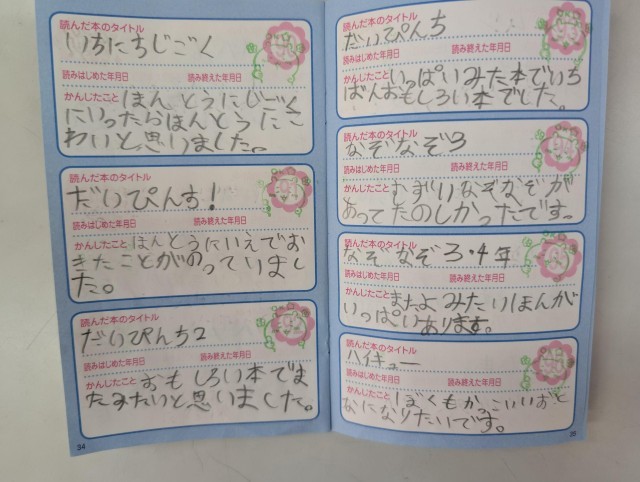 読んだ本のタイトル
いちにちじごく
読みはじめた年月日 読み終えた年月日
かんじたこと ほんとうにじごく
にいったらほんとうにこ
わいと思いました。
読んだ本のタイトル
だいぴんす!
読みはじめた年月日 読み終えた年月日
かんじたこと ほんとうにいえでお
きたことがのっていまし
た。
読んだ本のタイトル
だいぴんち2
読みはじめた年月日 読み終えた年月日
かんじたこと おもしろい本でま
たみたいと思いました。
34
読んだ本のタイトル
だいぴんち
読みはじめた年月日 読み終えた年月日
かんじたこと いっぱいみた本でいち
ばんおもしろい本でした。
読んだ本のタイトル
なぞなぞ3
読みはじめた年月日 読み終えた年月日
かんじたこと むずいなぞなぞが
あってたのしかったです。
読んだ本のタイトル
なぞなぞ3・4年
読みはじめた年月日 読み終えた年月日
かんじたこと またよみたいほんが
いっぱいあります。
読んだ本のタイトル
ハイキュー
読みはじめた年月日 読み終えた年月日
かんじたこと ぼくもかっこいいおと
なになりたいです。
35